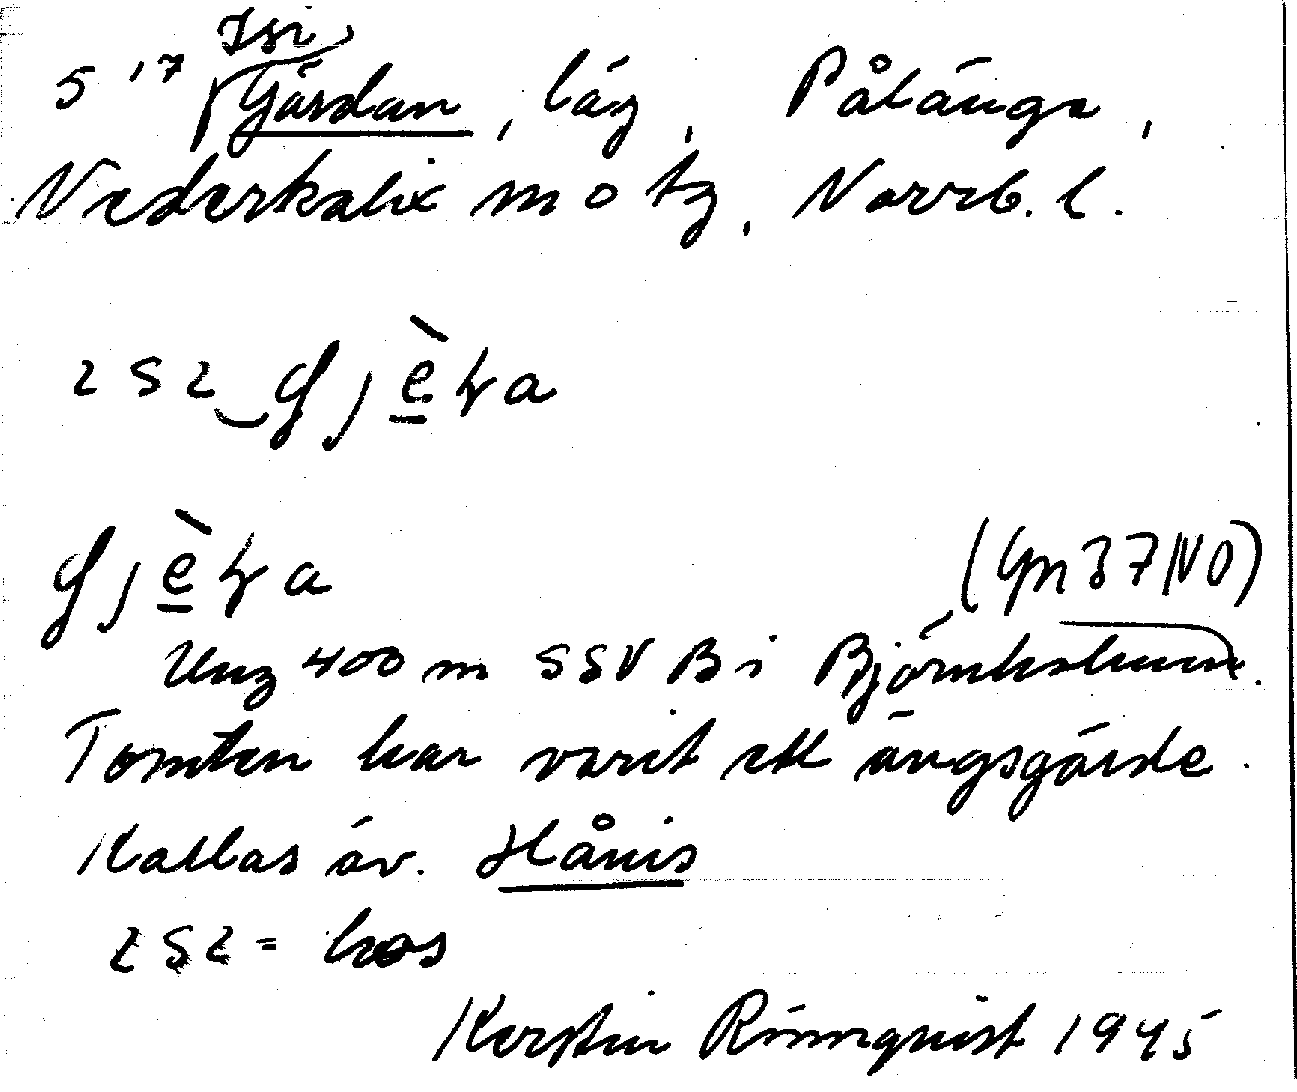 Isi
5 '17 Gärdan, läg, Pålänge,
Nederkalix m o tg. Norrb. l.
ɩsɩ gjèɽa
gjèɽa (Gm 37 NO)
Ung 400 m SSV B i Björnholmen.
Tomten har varit ett ängsgärde.
Kallas äv. Hånis
ɩsɩ = hos
Kerstin Rönnquist 1945